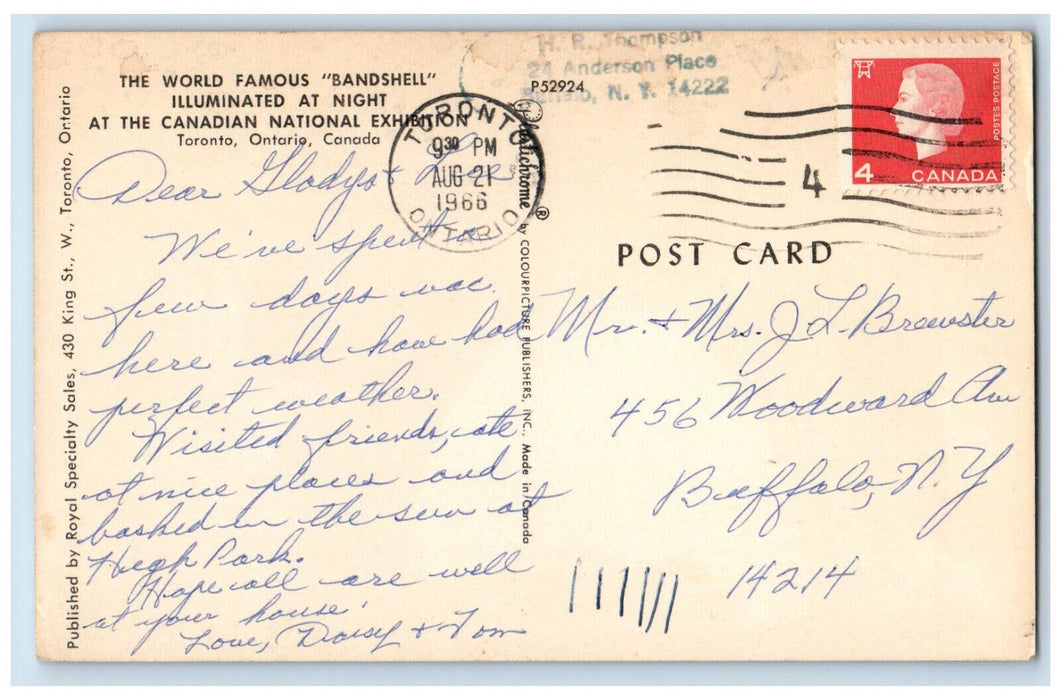 THE WORLD FAMOUS "BANDSHELL"
ILLUMINATED AT NIGHT
AT THE CANADIAN NATIONAL EXHIBITION
Toronto, Ontario, Canada
Published by Royal Specialty Sales, 430 King St., W., Toronto, Ontario
Dear Gladys +
We've spent a
few days vac.
here and have had
perfect weather.
Visited friends, ate
at nice places and
basked in the sun at
High Park.
Hope all are well
at your house.
Love, Daisy + Tom
H. R. Thompson
24 Anderson Place
Buffalo, N. Y. 14222
P52924
Plastichrome ® by COLOURPICTURE PUBLISHERS, INC., Made in Canada
TORONTO
9 30 PM
AUG 21
1966
ONTARIO
4
POSTES POSTAGE
4 CANADA
POST CARD
Mr. + Mrs. J. L. Brewster
456 Woodward Av
Buffalo, N. Y
14214